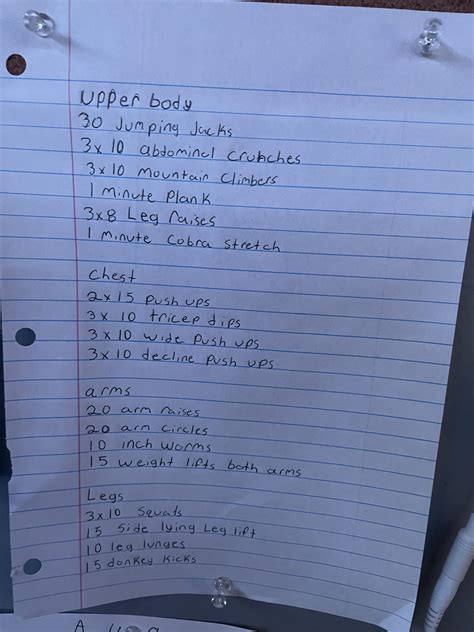 upper body
30 Jumping Jacks
3x10 abdominel crunches
3x10 mountain climbers
1 minute plank
3x8 Leg raises
1 minute cobra stretch
chest
2x15 push ups
3x10 tricep dips
3x10 wide push ups
3x10 decline push ups
arms
20 arm raises
20 arm circles
10 inch worms
15 weight lifts both arms
Legs
3x10 squats
15 side lying Leg lift
10 leg lunges
15 donkey kicks